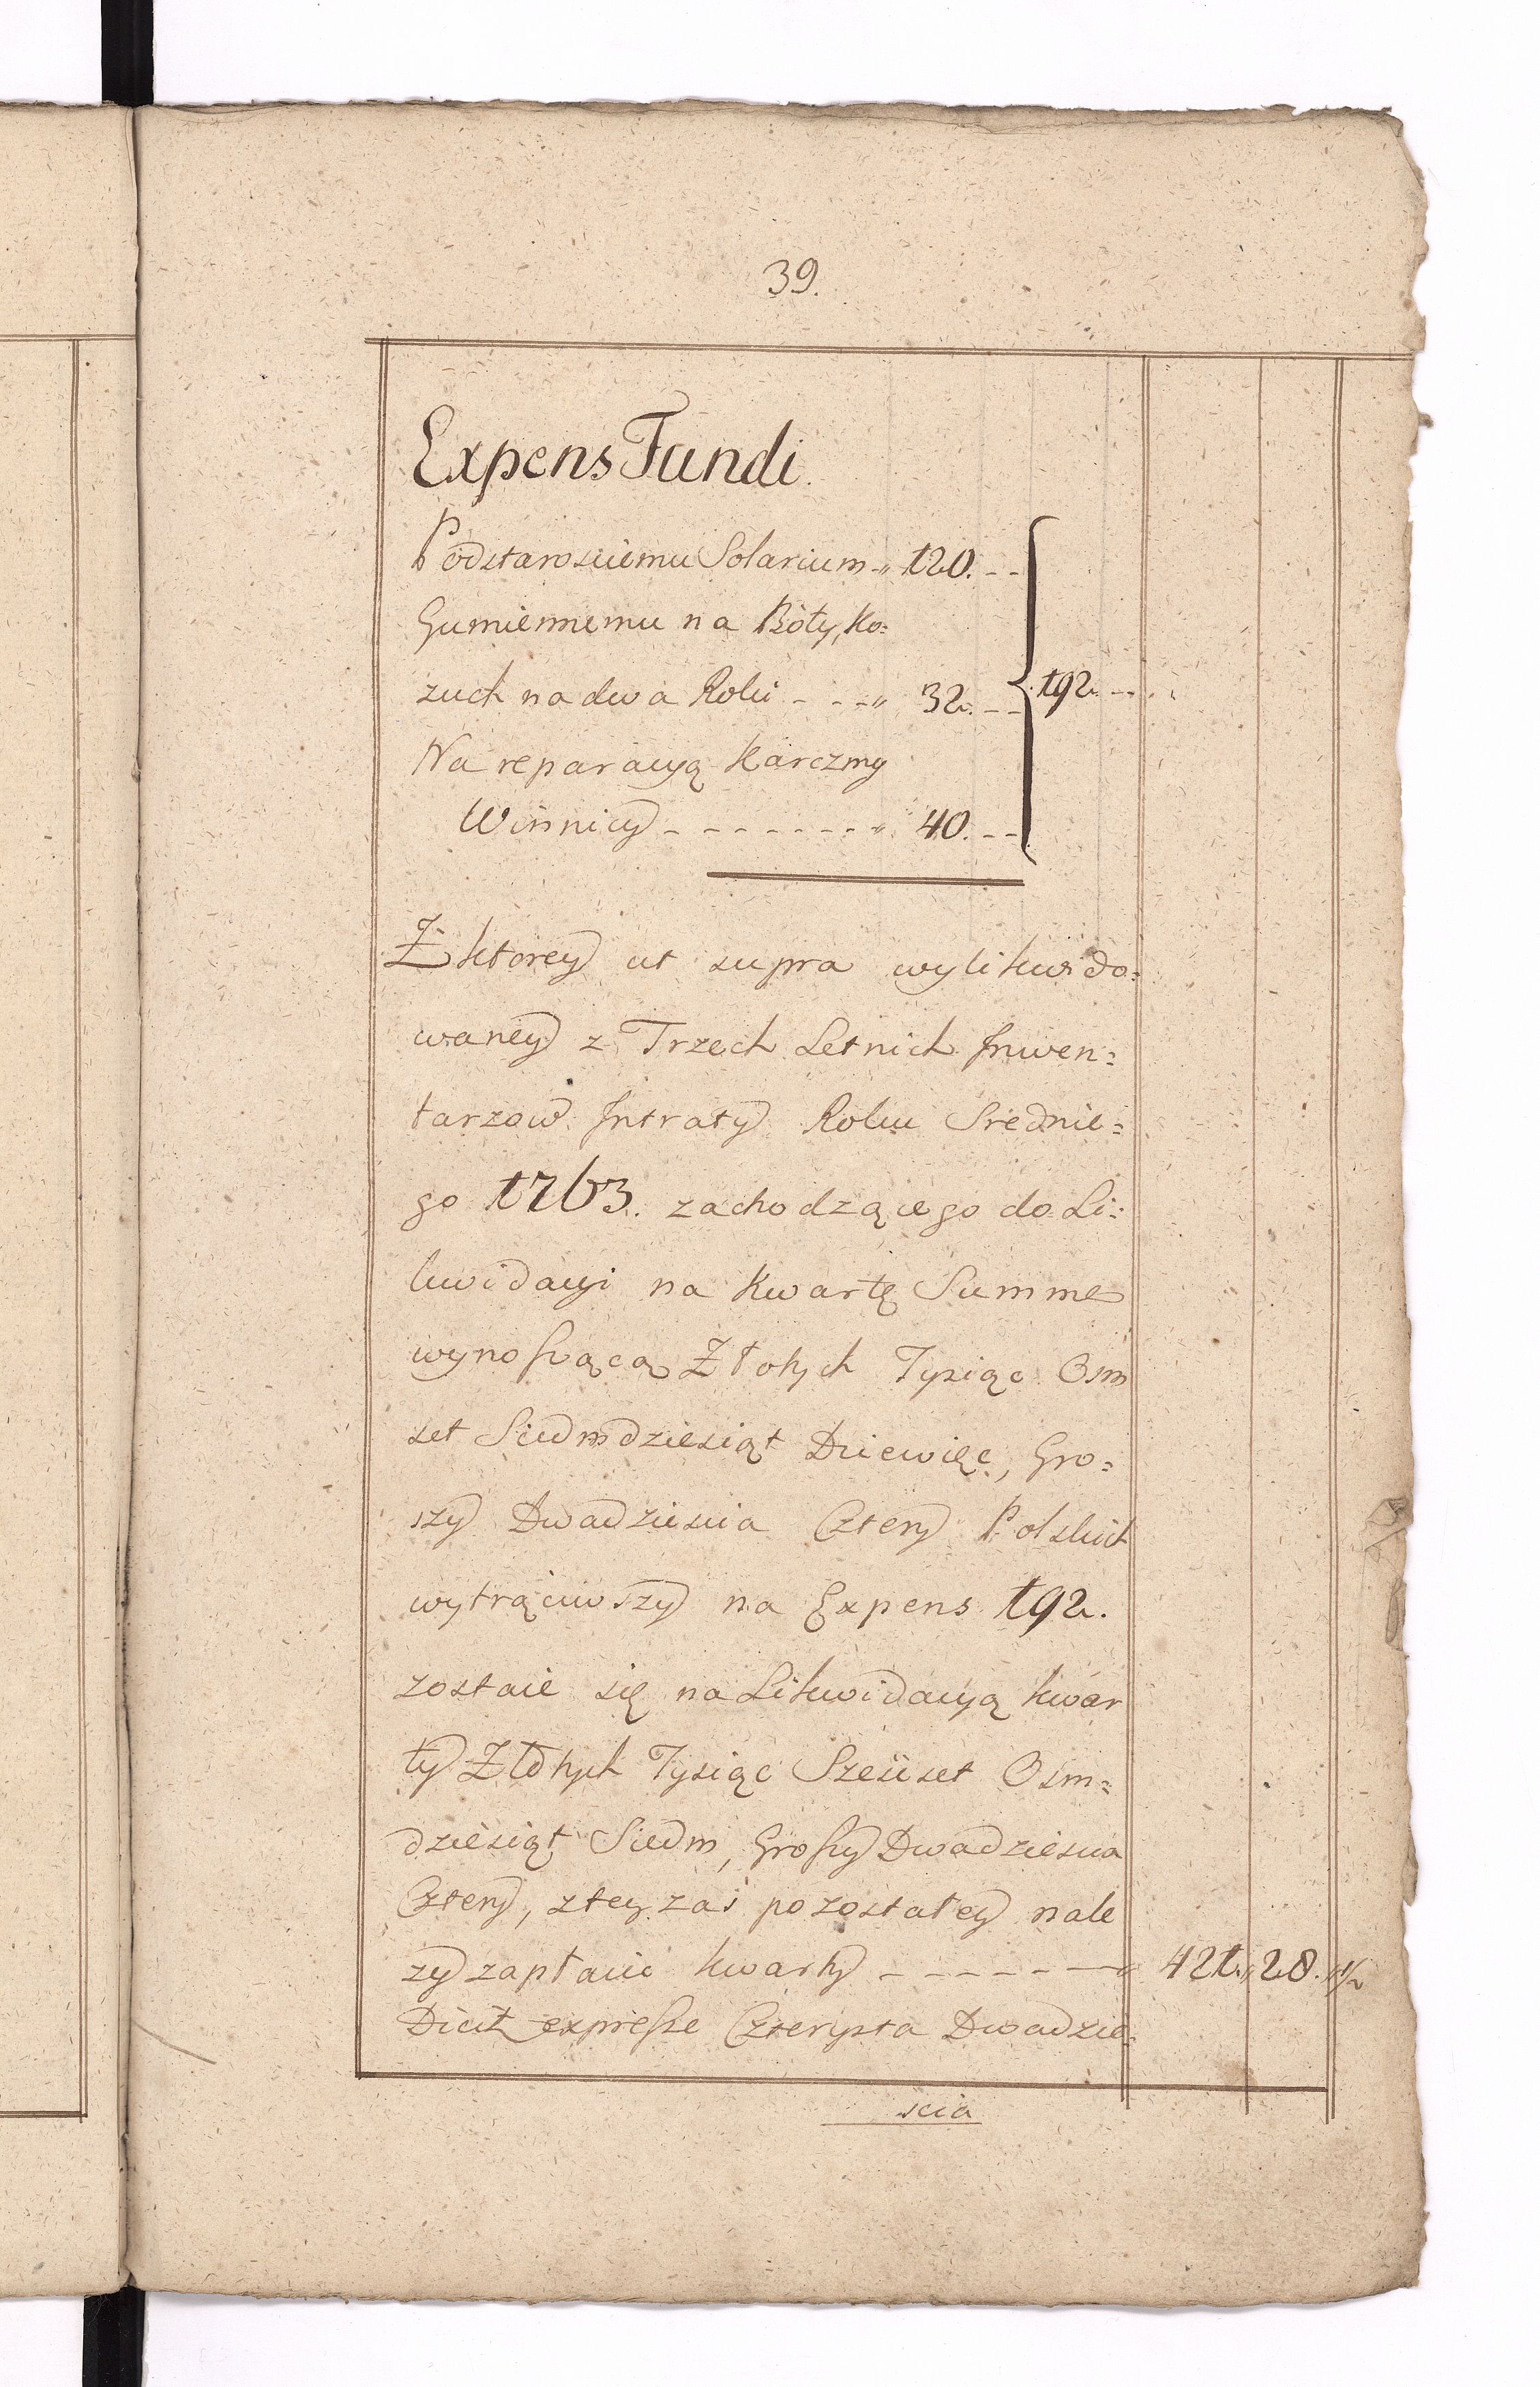 39.
Expens Fundi.
Podstarosciemu Solarium „ 120. --
Gumiennemu na Bóty, Ko=
zuch na dwa Roku - - - „ 32. --
192. --
Na reparacyą Karczmy
Winnicy - - - - - - - - „ 40. --
Z ktorey ut supra wylikwido=
waney z Trzech Letnich Inwen=
tarzow Intraty Roku Srednie=
go 1763. zachodzącego do Li=
kwidacyi na Kwartę Summe
wynoszącą Złotych Tysiąc Osm
set Siedmdziesiąt Dziewięć, Gro=
szy Dwadziescia Cztery Polskich
wytrąciwszy na Expens 192.
zostaie się na Likwidacyą kwar
ty Złotych Tysiąc Szesset Osm=
dziesiąt Siedm, Groszy Dwadziescia
Cztery, z tey zaś pozostałey nale
zy zapłacic kwarty - - - - - - „ 421. „ 28. „ 1/2
Dicit expresse Czterysta Dwadzie=
scia